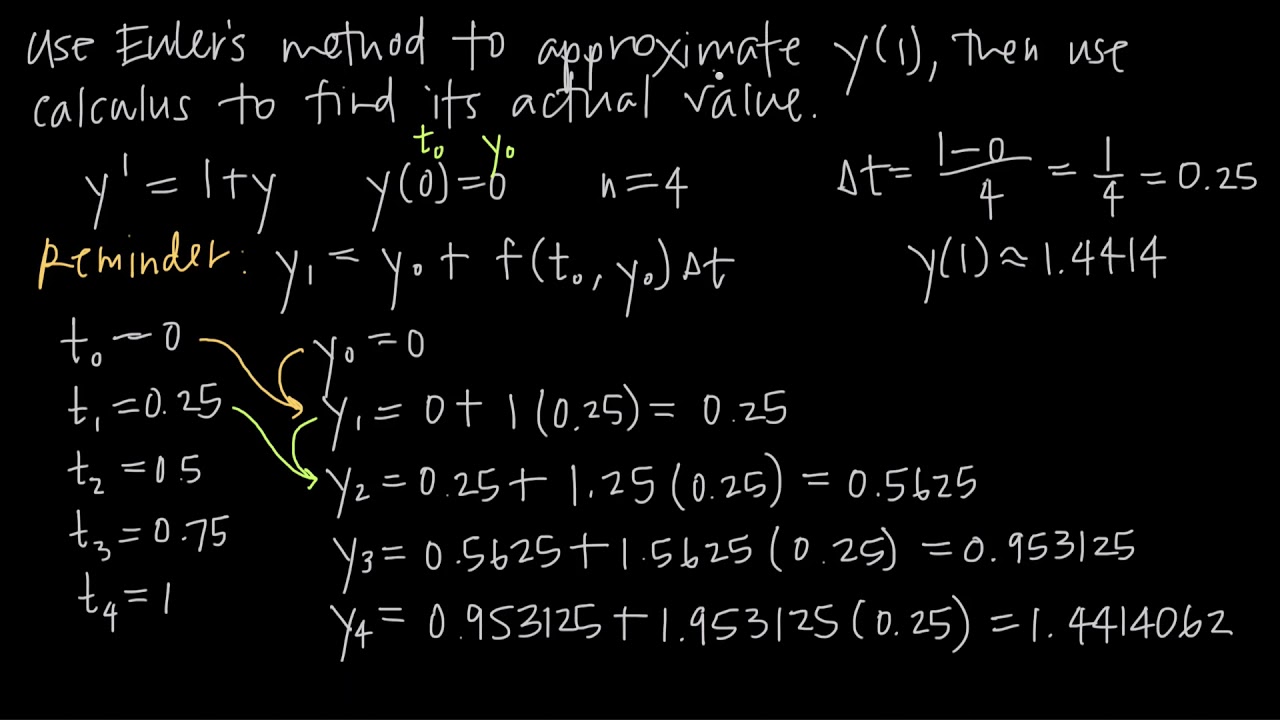 Use Euler's method to approximate y(1), then use
calculus to find its actual value.
t₀ y₀
y' = 1+y y(0)=0 n=4 Δt= (1-0)/4 = 1/4 = 0.25
Reminder: y₁ = y₀ + f(t₀, y₀)Δt y(1)≈1.4414
t₀ = 0 y₀ = 0
t₁ = 0.25 y₁ = 0 + 1(0.25) = 0.25
t₂ = 0.5 y₂ = 0.25 + 1.25(0.25) = 0.5625
t₃ = 0.75 y₃ = 0.5625 + 1.5625(0.25) = 0.953125
t₄ = 1 y₄ = 0.953125 + 1.953125(0.25) = 1.4414062